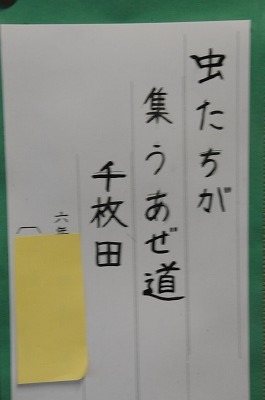 虫たちが
集うあぜ道
千枚田
六年